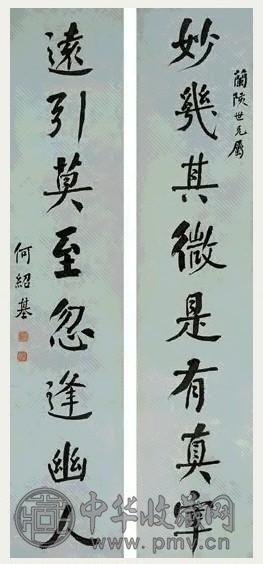 蘭陔世兄屬
妙幾其微是有真宰
遠引莫至忽逢幽人
何紹基
中华收藏网
www.pmvc.cn